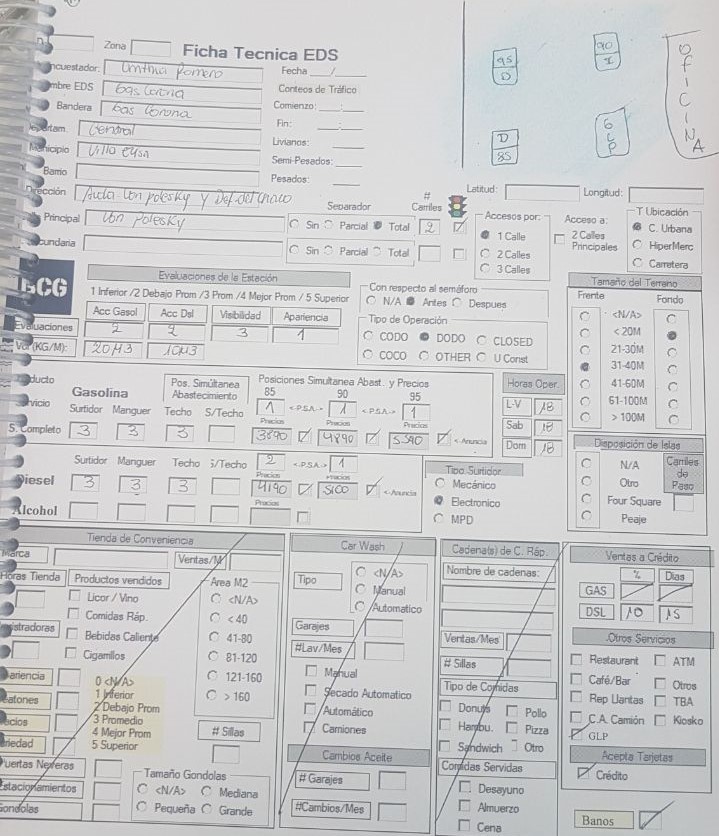 Zona
Ficha Tecnica EDS
95
D
90
I
OFICINA
D
85
GLP
ncuestador: Cinthia Romero
Fecha ___/___
mbre EDS Gas Corona
Conteos de Tráfico
Bandera Gas Corona
Comienzo: ___:___
epartam. Central
Fin: ___:___
Municipio Villa Elisa
Livianos:
Barrio
Semi-Pesados:
Pesados:
Dirección Avda Von polesky y Def. del Chaco
Latitud: Longitud:
Principal Von Polesky
Separador # Carriles
Sin Parcial Total 2
cundaria
Sin Parcial Total
Accesos por:
1 Calle
2 Calles
3 Calles
Acceso a:
2 Calles Principales
T Ubicación
C. Urbana
HiperMerc
Carretera
BCG
Evaluaciones de la Estación
1 Inferior /2 Debajo Prom /3 Prom /4 Mejor Prom / 5 Superior
Acc Gasol Acc Dsl Visibilidad Apariencia
Evaluaciones 2 2 3 1
Vol (KG/M): 20M3 10M3
Con respecto al semáforo
N/A Antes Despues
Tipo de Operación
CODO DODO CLOSED
COCO OTHER U Const
Tamaño del Terreno
Frente Fondo
<N/A>
< 20M
21-30M
31-40M
41-60M
61-100M
> 100M
ducto
Gasolina
Pos. Simúltanea Abastecimiento
Posiciones Simultanea Abast. y Precios
85 90 95
rvicio Surtidor Manguer Techo S/Techo
1 <-P.S.A.-> 1 <-P.S.A.-> 1
Precios Precios Precios
S. Completo 3 3 3 3890 4890 5590 <-Anuncia
Horas Oper.
L-V 18
Sab 18
Dom 18
Surtidor Manguer Techo S/Techo
2 <-P.S.A-> 1
Precios Precios
Diesel 3 3 3 4190 5100 <-Anuncia
Precios
Alcohol
Tipo Surtidor
Mecánico
Electronico
MPD
Disposición de Islas
N/A
Otro
Four Square
Peaje
Carriles de Paso
Tienda de Conveniencia
Marca Ventas/M
Horas Tienda Productos vendidos
Licor / Vino
Comidas Ráp.
gistradoras Bebidas Caliente
Cigarrillos
Area M2
<N/A>
< 40
41-80
81-120
121-160
> 160
ariencia
eatones
ecios
riedad
0 <N/A>
1 Inferior
2 Debajo Prom
3 Promedio
4 Mejor Prom
5 Superior
# Sillas
Puertas Neveras
Estacionamientos
Gondolas
Tamaño Gondolas
<N/A> Mediana
Pequeña Grande
Car Wash
Tipo
<N/A>
Manual
Automatico
Garajes
#Lav/Mes
Manual
Secado Automatico
Automático
Camiones
Cambios Aceite
# Garajes
#Cambios/Mes
Cadena(s) de C. Ráp.
Nombre de cadenas:
Ventas/Mes
# Sillas
Tipo de Comidas
Donuts Pollo
Hambu. Pizza
Sandwich Otro
Comidas Servidas
Desayuno
Almuerzo
Cena
Ventas a Crédito
% Dias
GAS
DSL 10 15
.Otros Servicios
Restaurant ATM
Café/Bar Otros
Rep Llantas TBA
C.A. Camión Kiosko
GLP
Acepta Tarjetas
Crédito
Banos